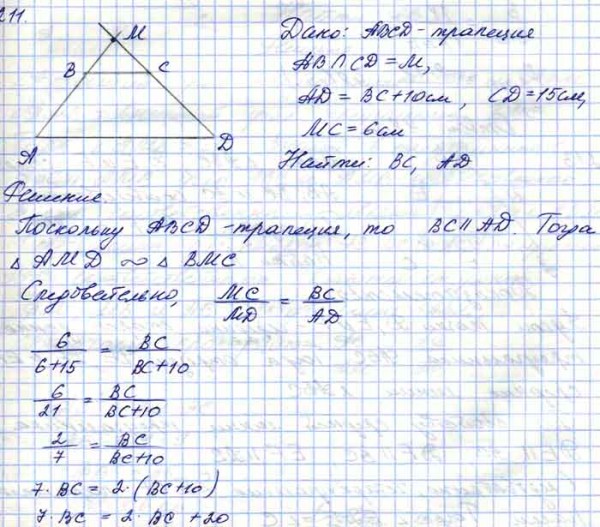 211.
M
B C
A D
Дано: ABCD - трапеция
AB ∩ CD = M,
AD = BC + 10 см, CD = 15 см,
MC = 6 см
Найти: BC, AD
Решение.
Поскольку ABCD - трапеция, то BC || AD. Тогда
△ AMD ∾ △ BMC
Следовательно, MC/MD = BC/AD
6/(6+15) = BC/(BC+10)
6/21 = BC/(BC+10)
2/7 = BC/(BC+10)
7 · BC = 2 · (BC+10)
7 · BC = 2 · BC + 20